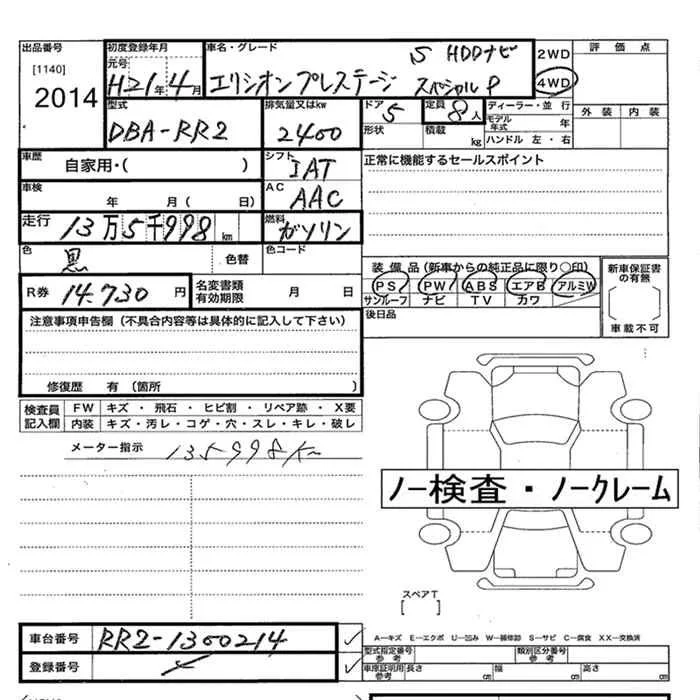 出品番号
[1140]
2014
初度登録年月
元号
H21年4月
車名・グレード
S HDDナビ
エリシオン プレステージ スペシャルP
2WD
4WD
評価点
外装 内装
型式
DBA-RR2
排気量又はkw
2400
ドア
5
形状
定員
8人
積載
kg
ディーラー・並行
モデル年式 年
ハンドル 左・右
車歴
自家用・( )
シフト
IAT
正常に機能するセールスポイント
車検
年 月( 日)
AC
AAC
走行
13万5千998km
燃料
ガソリン
色
黒
色替
色コード
装備品(新車からの純正品に限り○印)
PS PW ABS エアB アルミW
サンルーフ ナビ TV カワ
新車保証書の有無
車載不可
R券 14.730円
名変書類有効期限 月 日
後日品
注意事項申告欄(不具合内容等は具体的に記入して下さい)
修復歴 有(箇所 )
検査員記入欄
FW キズ・飛石・ヒビ割・リペア跡・X要
内装 キズ・汚レ・コゲ・穴・スレ・キレ・破レ
メーター指示 135998K
ノー検査・ノークレーム
スペアT
[ ]
車台番号 RR2-1300214
登録番号
A-キズ E-エクボ U-凹み W-補修跡 S-サビ C-腐食 XX-交換済
型式指定番号 参考
類別区分番号 参考
車庫証明用 参考 長さ cm 幅 cm 高さ cm